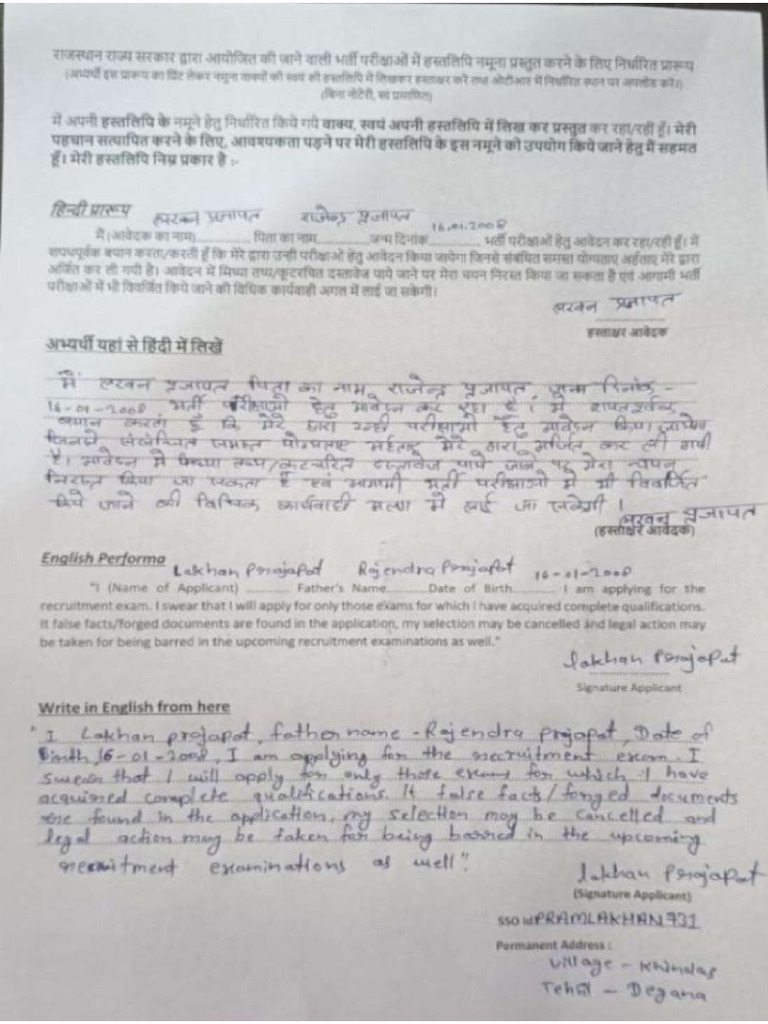 राजस्थान राज्य सरकार द्वारा आयोजित की जाने वाली भर्ती परीक्षाओं में हस्तलिपि नमूना प्रस्तुत करने के लिए निर्धारित प्रारूप
(अभ्यर्थी इस प्रारूप का प्रिंट लेकर नमूना वाक्यों को स्वयं की हस्तलिपि में लिखकर हस्ताक्षर करें तथा ओटीआर में निर्धारित स्थान पर अपलोड करें।)
(बिना नोटेरी, स्व प्रमाणित)
में अपनी हस्तलिपि के नमूने हेतु निर्धारित किये गये वाक्य, स्वयं अपनी हस्तलिपि में लिख कर प्रस्तुत कर रहा/रही हूँ। मेरी
पहचान सत्यापित करने के लिए, आवश्यकता पड़ने पर मेरी हस्तलिपि के इस नमूने को उपयोग किये जाने हेतु मैं सहमत
हूँ। मेरी हस्तलिपि निम्न प्रकार है :-
हिन्दी प्रारूप लखन प्रजापत राजेन्द्र प्रजापत 16.01.2008
में (आवेदक का नाम)............ पिता का नाम............ जन्म दिनांक............ भर्ती परीक्षाओं हेतु आवेदन कर रहा/रही हूँ। में
शपथपूर्वक बयान करता/करती हूँ कि मेरे द्वारा उन्ही परीक्षाओं हेतु आवेदन किया जायेगा जिनसे संबंधित समस्त योग्यताएं अर्हताएं मेरे द्वारा
अर्जित कर ली गयी है। आवेदन में मिथ्या तथ्य/कूटरचित दस्तावेज पाये जाने पर मेरा चयन निरस्त किया जा सकता है एवं आगामी भर्ती
परीक्षाओं में भी विवर्जित किये जाने की विधिक कार्यवाही अमल में लाई जा सकेगी।
लखन प्रजापत
हस्ताक्षर आवेदक
अभ्यर्थी यहां से हिंदी में लिखें
मैं लखन प्रजापत पिता का नाम राजेन्द्र प्रजापत जन्म दिनांक -
16-01-2008 भर्ती परीक्षाओं हेतु आवेदन कर रहा हूँ। में शपथपूर्वक
बयान करता हूँ कि मेरे द्वारा उन्ही परीक्षाओं हेतु आवेदन किया जायेगा
जिनसे संबंधित समस्त योग्यताएं अर्हताएं मेरे द्वारा अर्जित कर ली गयी
है। आवेदन में मिथ्या तथ्य/कूटरचित दस्तावेज पाये जाने पर मेरा चयन
निरस्त किया जा सकता है एवं आगामी भर्ती परीक्षाओं में भी विवर्जित
किये जाने की विधिक कार्यवाही में लाई जा सकेगी।
लखन प्रजापत
(हस्ताक्षर आवेदक)
English Performa Lakhan Prajapat Rajendra Prajapat 16-01-2008
"I (Name of Applicant) ............ Father's Name............Date of Birth............ I am applying for the
recruitment exam. I swear that I will apply for only those exams for which I have acquired complete qualifications.
It false facts/forged documents are found in the application, my selection may be cancelled and legal action may
be taken for being barred in the upcoming recruitment examinations as well."
lakhan Prajapat
Signature Applicant
Write in English from here
"I Lakhan prajapat, father name - Rajendra Prjapat, Date of
Birth 16-01-2008, I am applying for the recruitment exam. I
Swear that I will apply for only those exams for which I have
acquired complete qualifications. It false facts/forged documents
are found in the application, my selection may be cancelled and
legal action may be taken for being barred in the upcoming
recruitment examinations as well".
lakhan Prajapat
(Signature Applicant)
SSO Id PRAMLAKHAN731
Permanent Address :
Village - Khindas
Tehsil - Degana